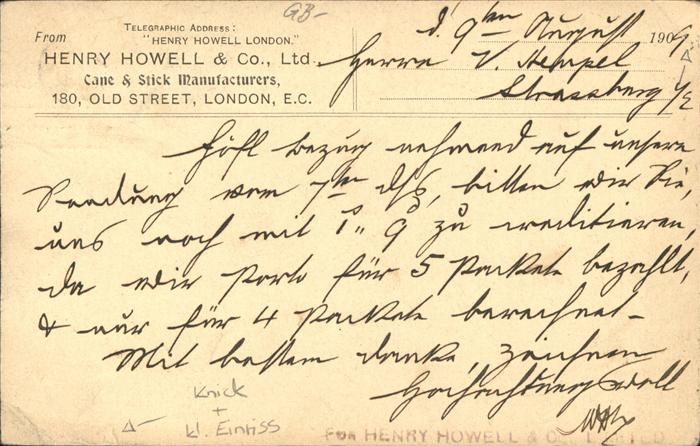 GB-
From
TELEGRAPHIC ADDRESS:
"HENRY HOWELL LONDON."
HENRY HOWELL & Co., Ltd.
Cane & Stick Manufacturers,
180, OLD STREET, LONDON, E.C.
d. 9ten August 190
Herrn V. Hempel
Strassburg i/E
Höfl bezug nehmend auf unsere
Sendung vom 7ten ds, bitten wir Sie,
uns noch mit 1s.. 9d zu creditieren,
da wir Porto für 5 Packete bezahlt,
& nur für 4 Packete berechnet -
Mit bestem danke, zeichnen
Hochachtungsvoll
Knick
+
kl. Einriss
FOR HENRY HOWELL & CO., LIMITED